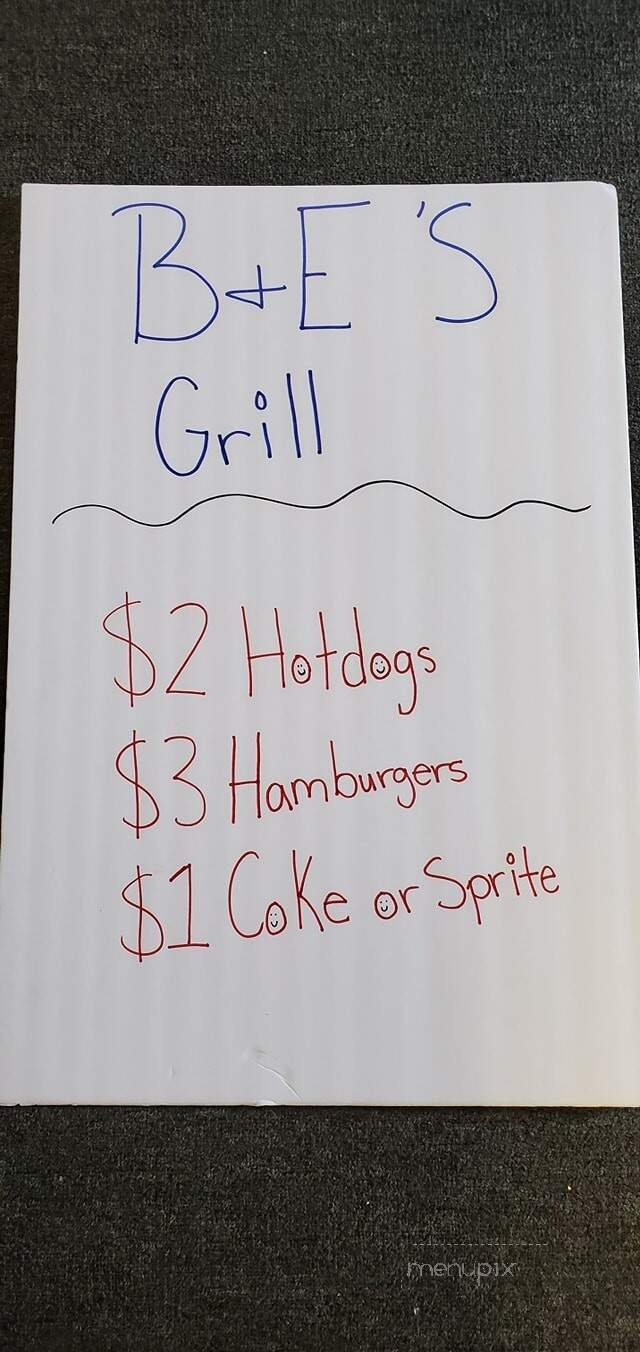 B+E'S
Grill
$2 Hotdogs
$3 Hamburgers
$1 Coke or Sprite
menupix